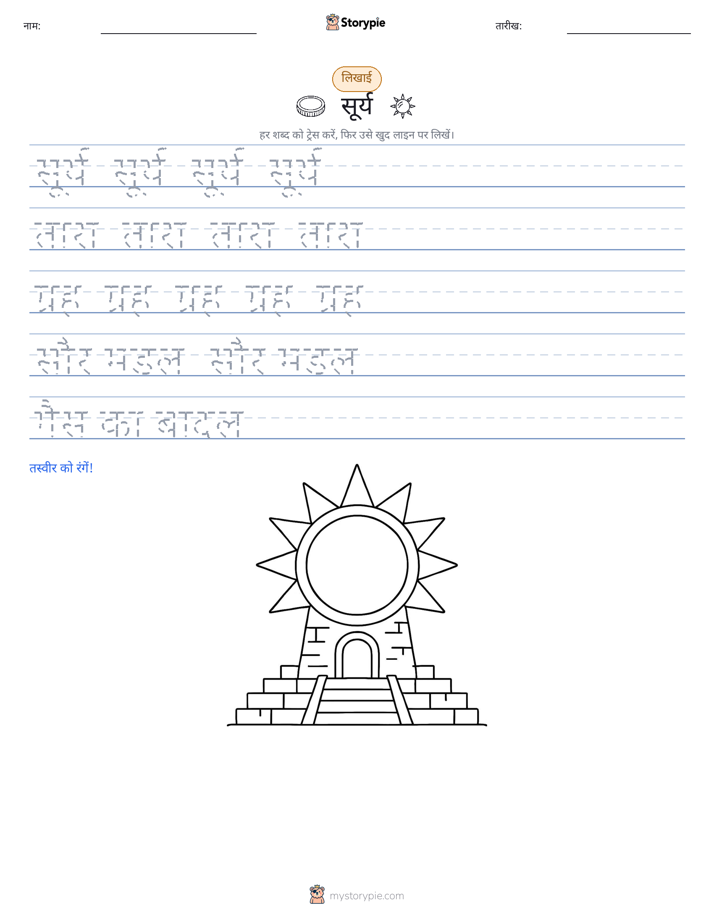 नाम:
Storypie
तारीख:
लिखाई
सूर्य
हर शब्द को ट्रेस करें, फिर उसे खुद लाइन पर लिखें।
सूर्य सूर्य सूर्य सूर्य
तारा तारा तारा तारा
ग्रह ग्रह ग्रह ग्रह ग्रह
सौर मंडल सौर मंडल
गैस का बादल
तस्वीर को रंगें!
mystorypie.com